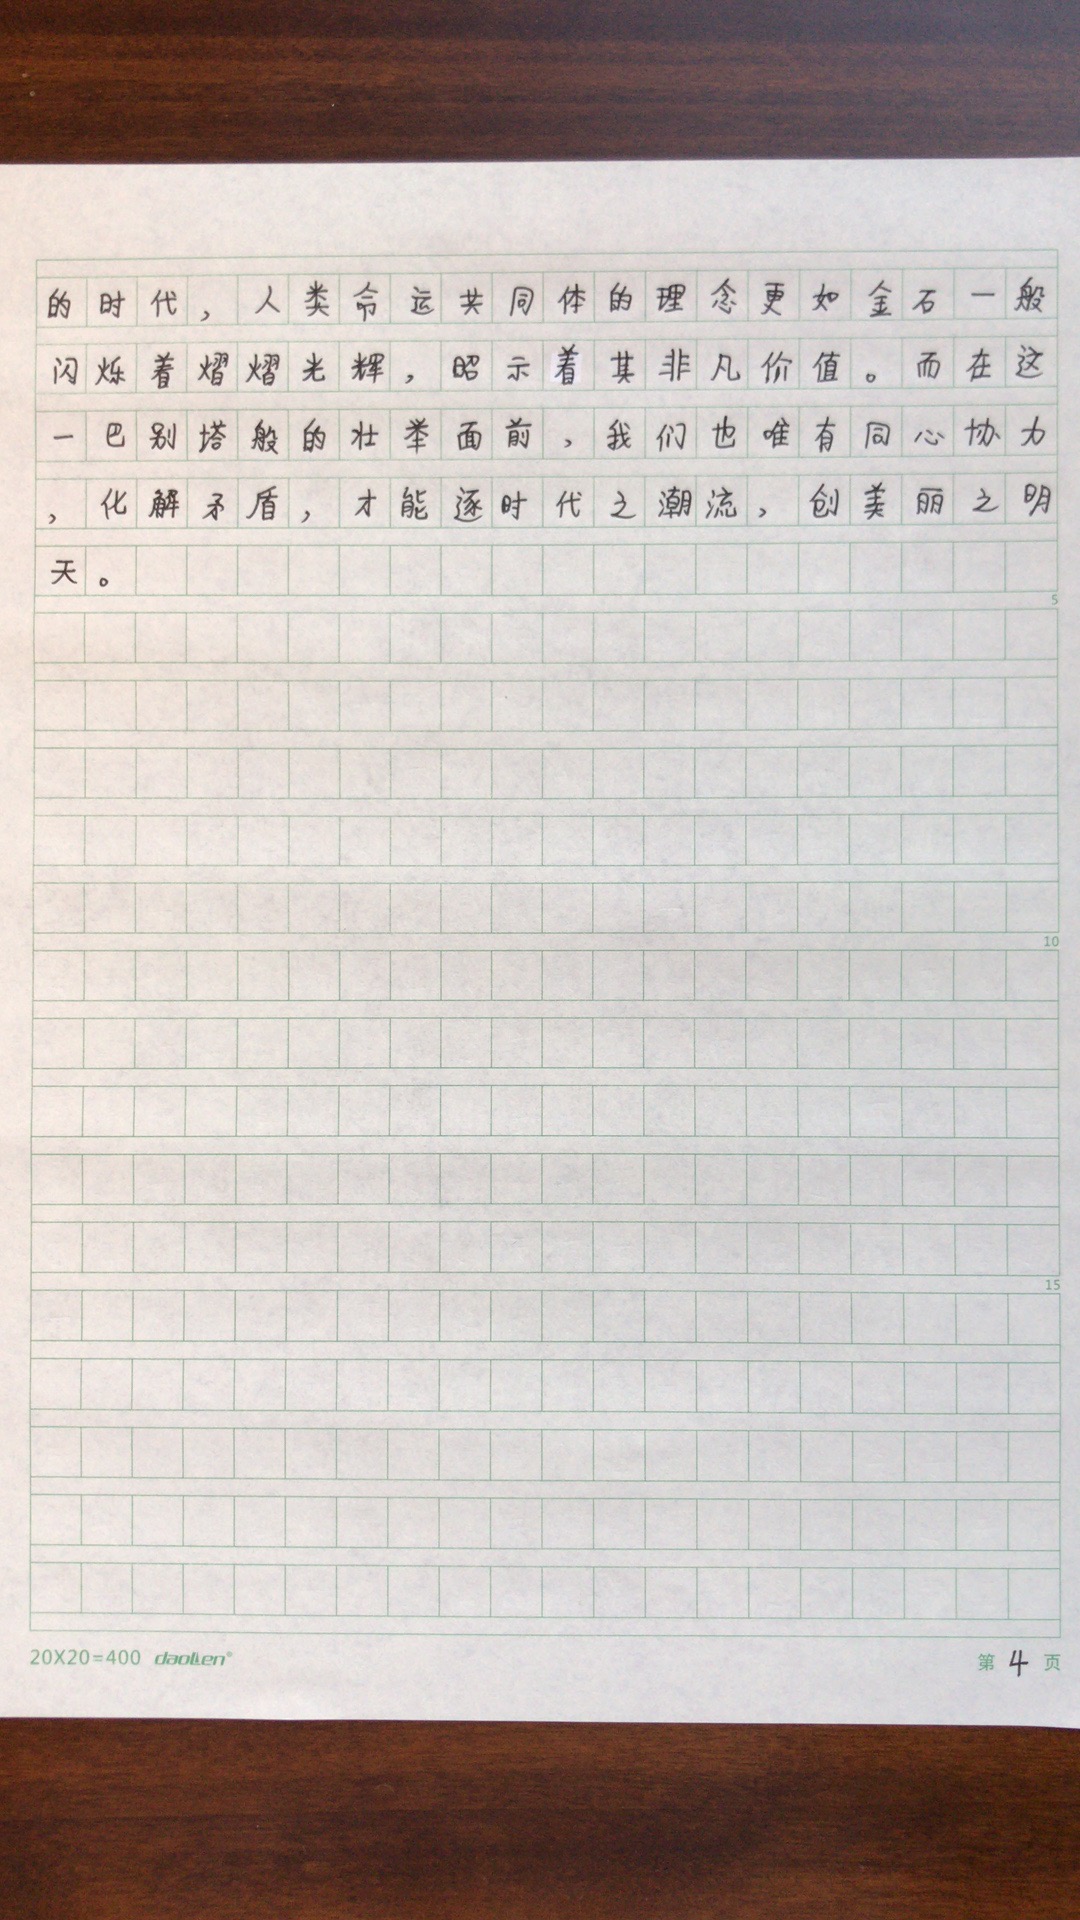 的时代，人类命运共同体的理念更如金石一般
闪烁着熠熠光辉，昭示着其非凡价值。而在这
一巴别塔般的壮举面前，我们也唯有同心协力
，化解矛盾，才能逐时代之潮流，创美丽之明
天。
5
10
15
20X20=400 daolien 第 4 页